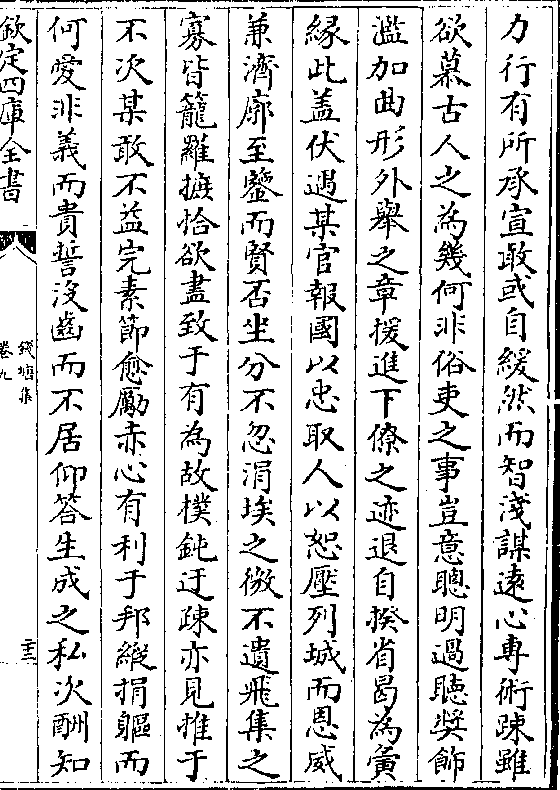 力行有所承宣敢或自緩然而智淺謀遠心專術疎雖
欲慕古人之為幾何非俗吏之事豈意聰明過聽奬飾
濫加曲形外舉之章援進下僚之迹退自揆省曷為夤
縁此盖伏遇某官報國以忠取人以恕壓列城而恩威
兼濟廓至鑒而賢否坐分不忽涓埃之微不遺飛集之
寡皆籠羅摭恰欲盡致于有為故樸鈍迂疎亦見推于
不次某敢不益完素節愈勵赤心有利于邦縱捐軀而
何愛非義而貴誓没齒而不居仰答生成之私次酬知
欽定四庫全書
錢塘集
卷九
二十三